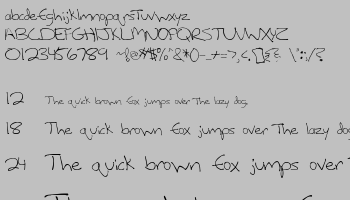 abcdefghijklmnopqrstuvwxyz
ABCDEFGHIJKLMNOPQRSTUVWXYZ
0123456789
12 The quick brown fox jumps over the lazy dog.
18 The quick brown fox jumps over the lazy dog
24 The quick brown fox jumps over